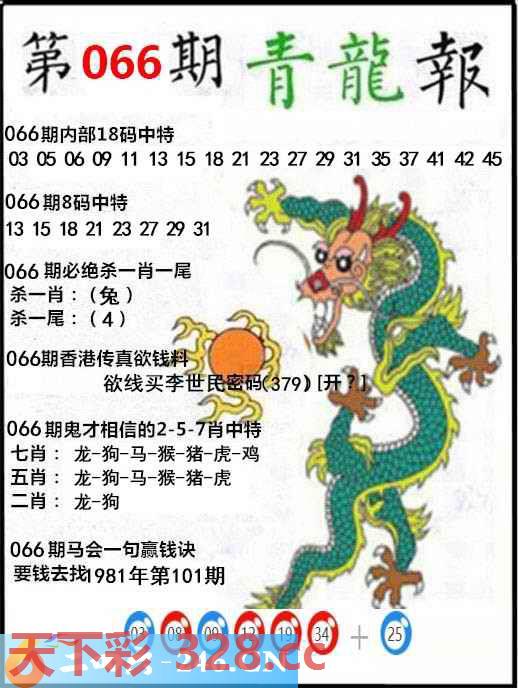 第066期 青龍報
066期内部18码中特
03 05 06 09 11 13 15 18 21 23 27 29 31 35 37 41 42 45
066期8码中特
13 15 18 21 23 27 29 31
066期必绝杀一肖一尾
杀一肖：（兔）
杀一尾：（4）
066期香港传真欲钱料
欲线买李世民密码(379)[开？]
066期鬼才相信的2-5-7肖中特
七肖：龙-狗-马-猴-猪-虎-鸡
五肖：龙-狗-马-猴-猪-虎
二肖：龙-狗
066期马会一句赢钱诀
要钱去找1981年第101期
03 08 09 12 19 34 + 25
天下彩-328.cc